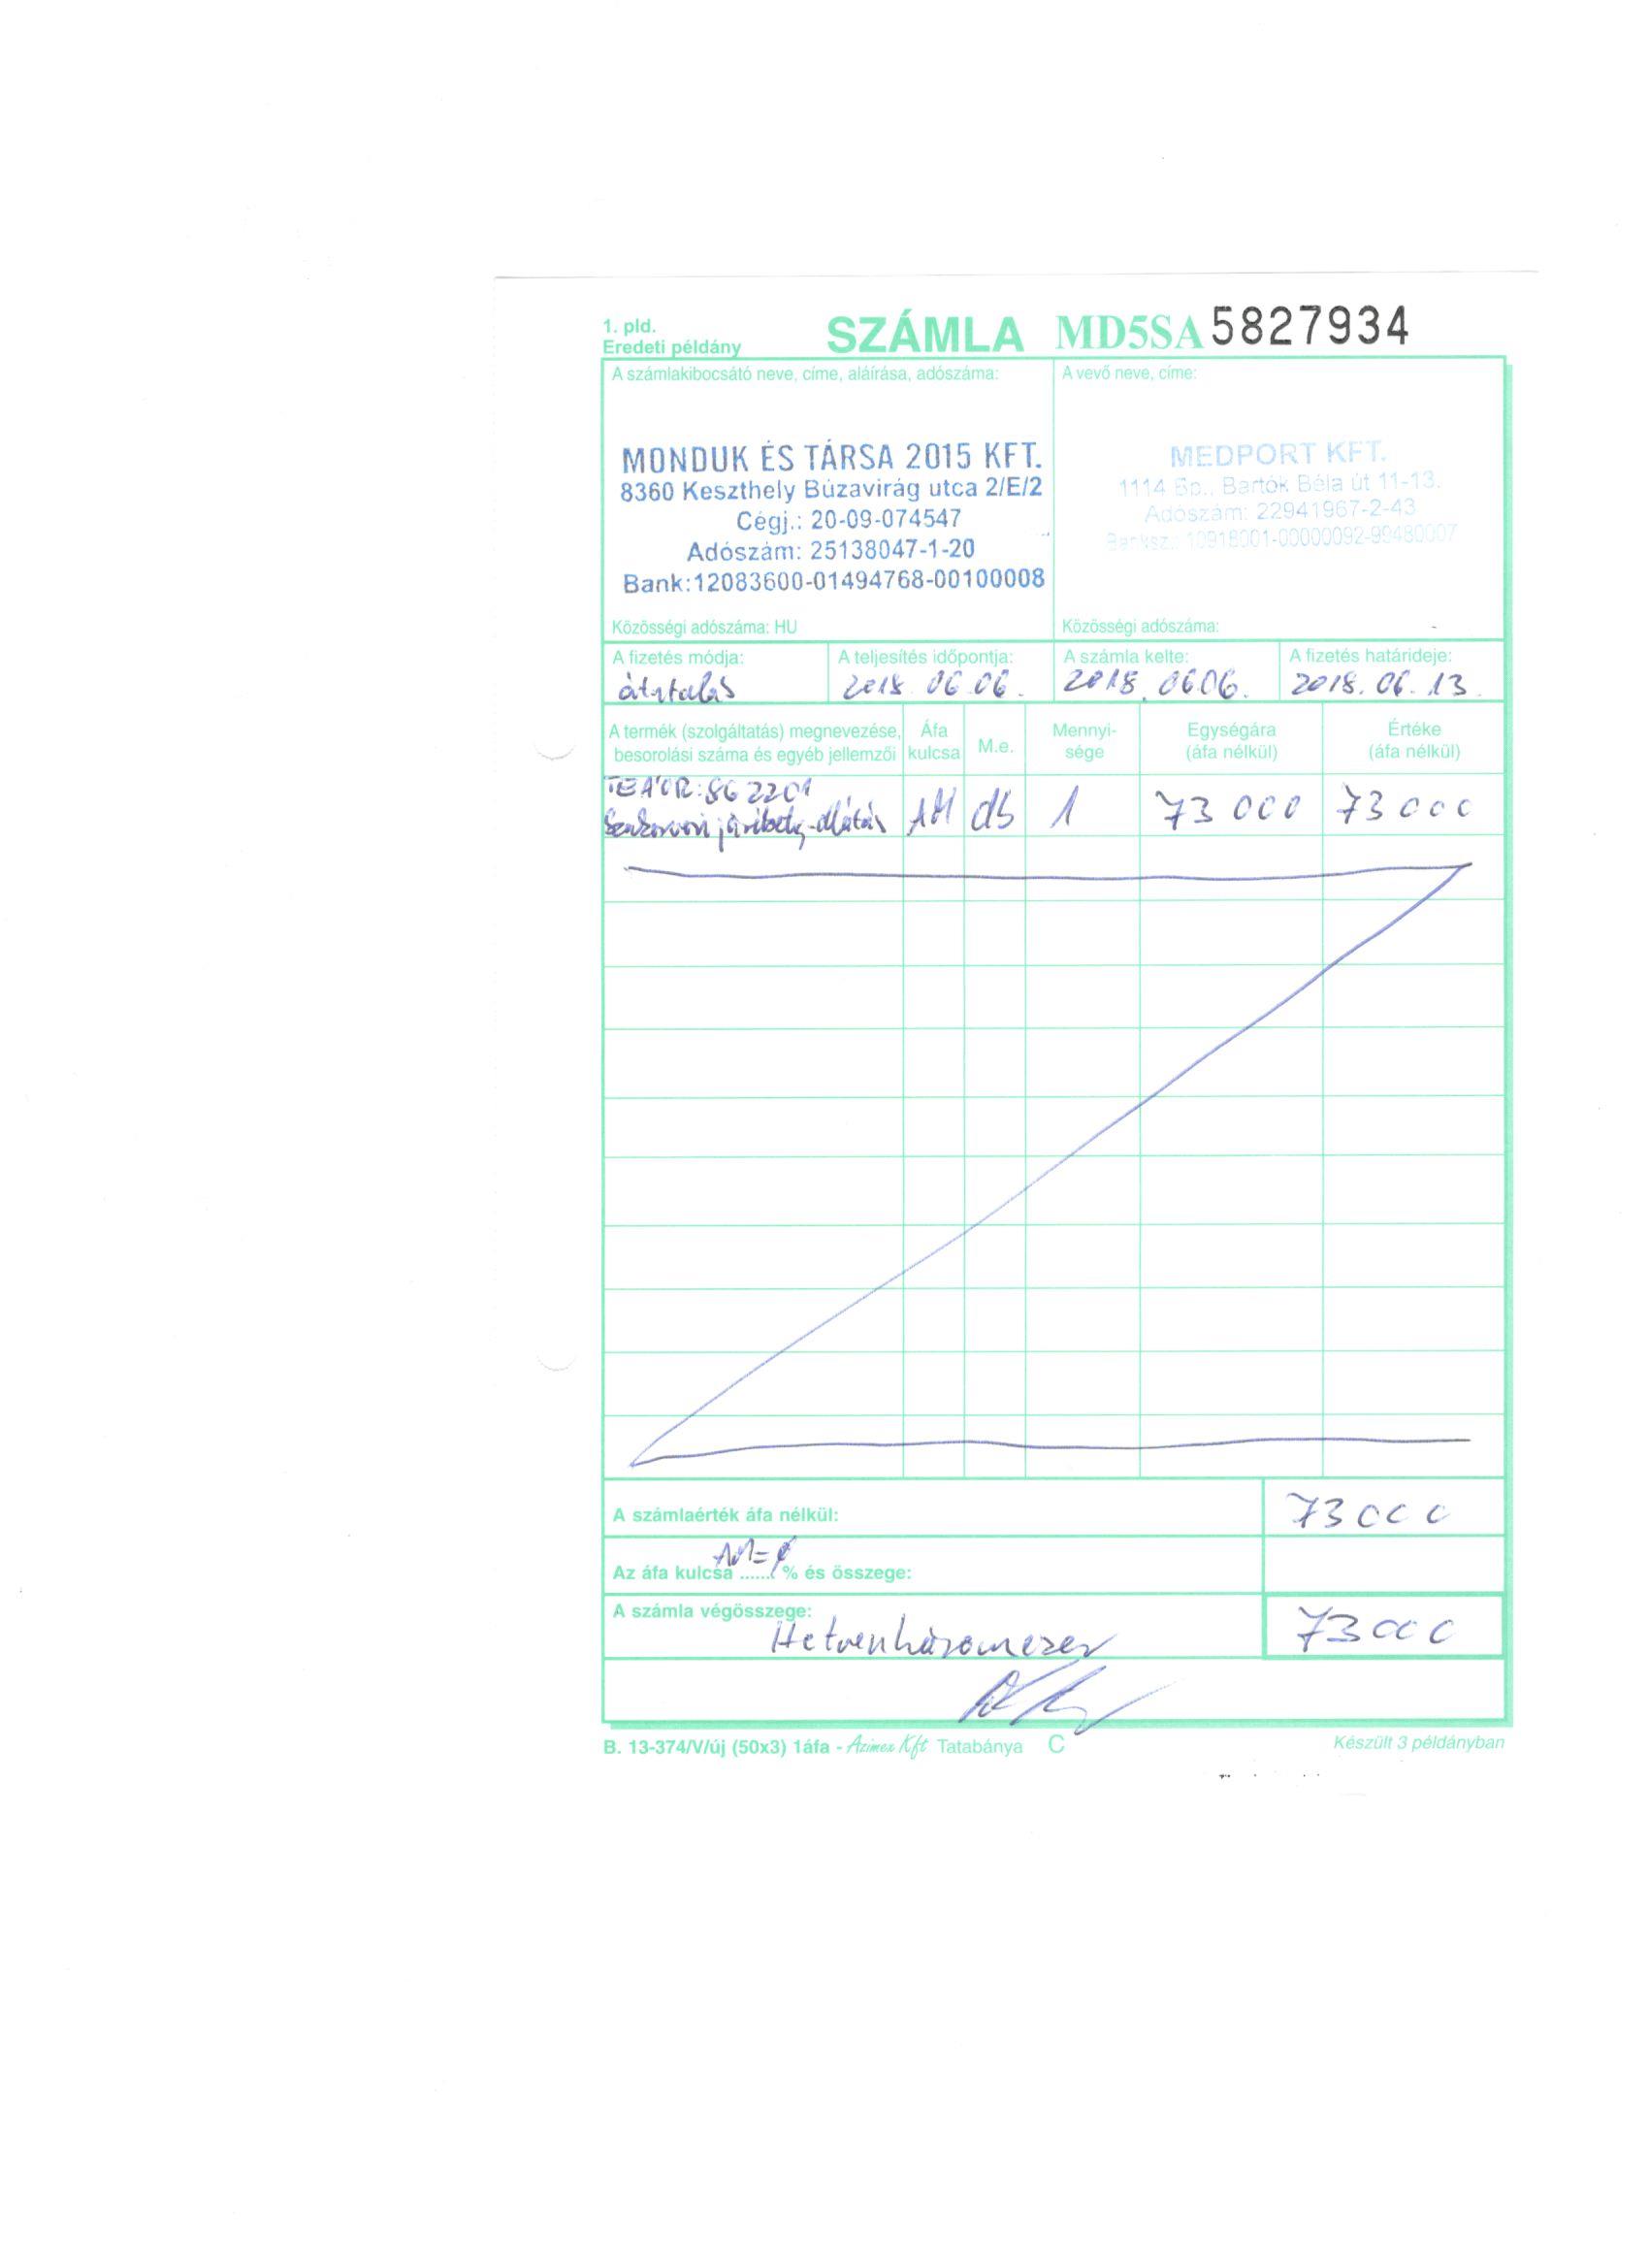 1. pld.
Eredeti példány
SZÁMLA MD5SA 5827934
A számlakibocsátó neve, címe, aláírása, adószáma:
MONDUK ÉS TÁRSA 2015 KFT.
8360 Keszthely Búzavirág utca 2/E/2
Cégj.: 20-09-074547
Adószám: 25138047-1-20
Bank:12083600-01494768-00100008
Közösségi adószáma: HU
A vevő neve, címe:
MEDPORT KFT.
1114 Bp., Bartók Béla út 11-13.
Adószám: 22941967-2-43
Banksz.: 10918001-00000092-99480007
Közösségi adószáma:
A fizetés módja:
átutalás
A teljesítés időpontja:
2018.06.06.
A számla kelte:
2018.0606.
A fizetés határideje:
2018.06.13.
A termék (szolgáltatás) megnevezése, besorolási száma és egyéb jellemzői
Áfa kulcsa
M.e.
Mennyi-sége
Egységára (áfa nélkül)
Értéke (áfa nélkül)
TEÁOR: 862201
Szakorvosi járóbeteg-ellátás AM db 1 73 000 73 000
A számlaérték áfa nélkül: 73 000
AM=0
Az áfa kulcsa ...... % és összege:
A számla végösszege: Hetvenháromezer 73 000
B. 13-374/V/új (50x3) 1áfa - Azimex Kft Tatabánya C
Készült 3 példányban